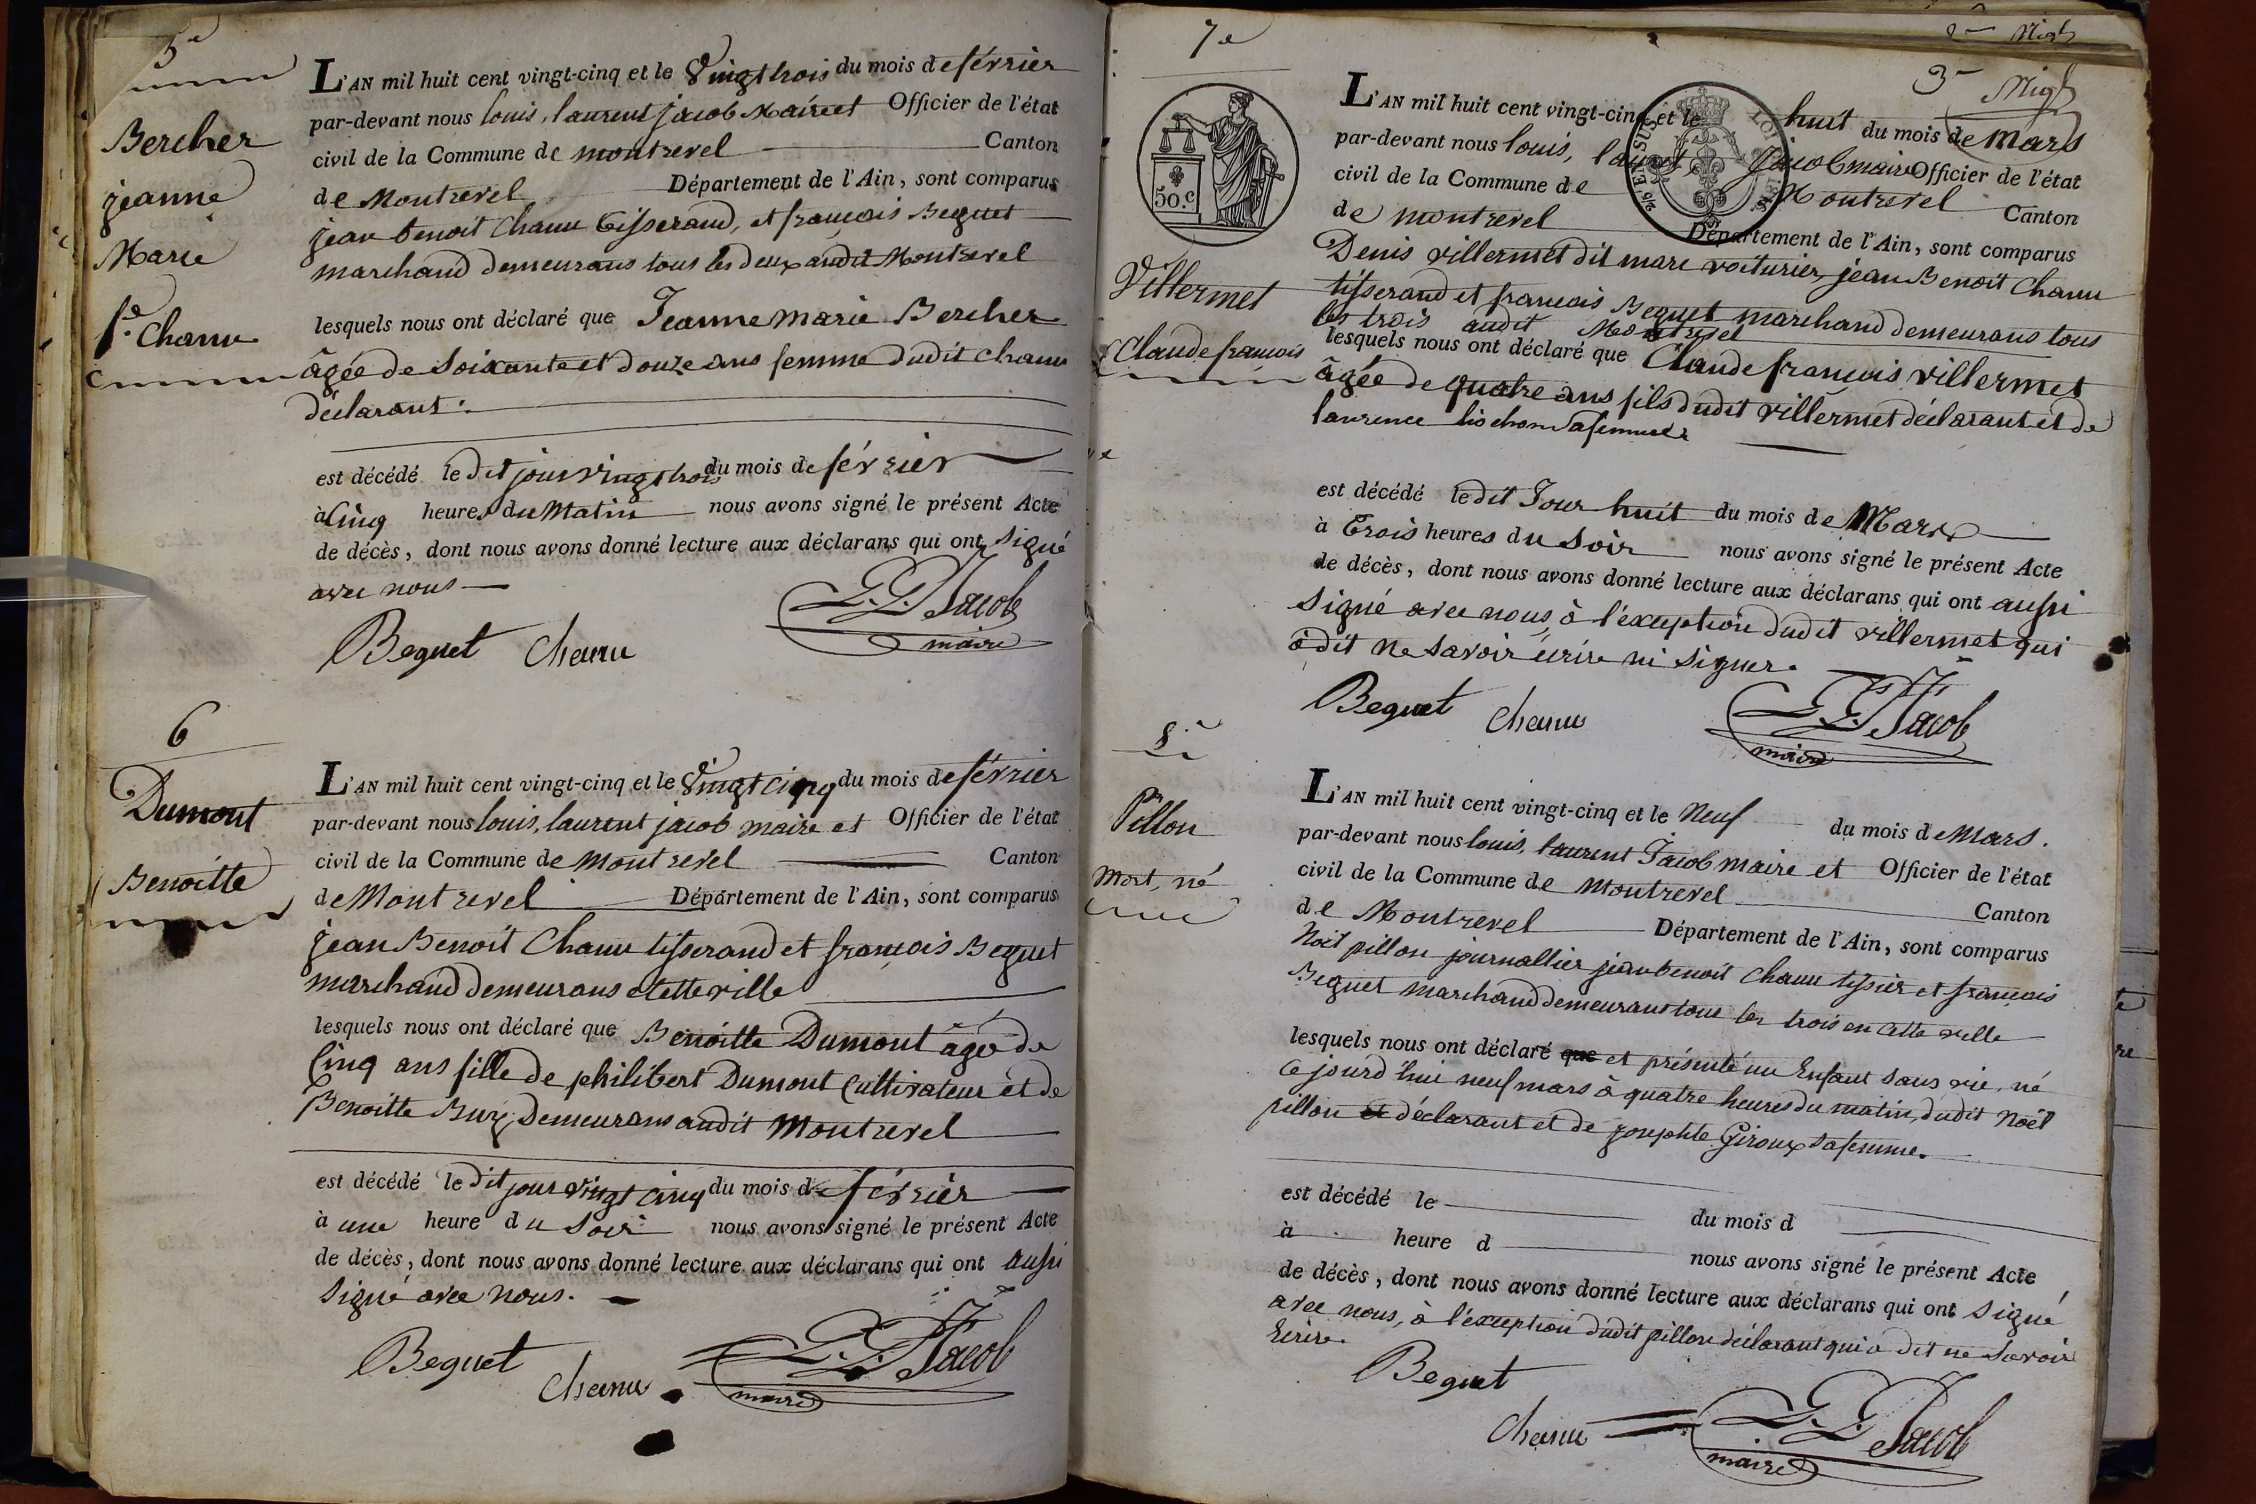 5e
Bercher
jeanne
Marie
fe. Chanu
L'AN mil huit cent vingt-cinq et le Vingt trois du mois de février
par-devant nous louis, laurent jacob Maire et Officier de l'état
civil de la Commune de montrevel Canton
de Montrevel Département de l'Ain, sont comparus
jean benoit Chanu tisserand, et françois Beguet
marchand demeurans tous les deux audit Montrevel
lesquels nous ont déclaré que Jeanne marie Bercher
âgée de Soixante et douze ans femme dudit Chanu
déclarant.
est décédé le dit jour vingt trois du mois de février
à Cinq heures du Matin nous avons signé le présent Acte
de décès, dont nous avons donné lecture aux déclarans qui ont signé
avec nous
Beguet Chanu L. L. Jacob
maire
6
Dumont
Benoitte
L'AN mil huit cent vingt-cinq et le Vingt cinq du mois de février
par-devant nous louis, laurent jacob maire et Officier de l'état
civil de la Commune de Montrevel Canton
de Montrevel Département de l'Ain, sont comparus
jean Benoit Chanu tisserand et françois Beguet
marchand demeurans cette ville
lesquels nous ont déclaré que Benoitte Dumont âgée de
Cinq ans fille de philibert Dumont Cultivateur et de
Benoitte Demeurans audit Montrevel
est décédé le dit jour vingt cinq du mois de février
à une heure du Soir nous avons signé le présent Acte
de décès, dont nous avons donné lecture aux déclarans qui ont aussi
signé avec nous.
Beguet Chanu L. L. Jacob
maire
7e
50.c
Villermet
Claude françois
L'AN mil huit cent vingt-cinq et le huit du mois de Mars
par-devant nous louis, laurent Jacob maire Officier de l'état
civil de la Commune de Montrevel Canton
de montrevel Département de l'Ain, sont comparus
Denis villermet dit marc voiturier, jean Benoit Chanu
tisserand et françois Beguet marchand demeurans tous
les trois audit Montrevel
lesquels nous ont déclaré que Claude françois villermet
âgée de quatre ans fils dudit villermet déclarant et de
laurence sa femme
est décédé le dit Jour huit du mois de Mars
à Trois heures du Soir nous avons signé le présent Acte
de décès, dont nous avons donné lecture aux déclarans qui ont aussi
signé avec nous, à l'éxception dudit villermet qui
a dit ne savoir écrire ni signer.
Beguet Chanu L. L. Jacob
maire
8e
Pillon
Mort, né
L'AN mil huit cent vingt-cinq et le Neuf du mois de Mars.
par-devant nous louis, laurent Jacob maire et Officier de l'état
civil de la Commune de Montrevel Canton
de Montrevel Département de l'Ain, sont comparus
Noël pillon journallier jean benoit Chanu tissier et françois
Beguet marchand demeurans tous les trois en cette ville
lesquels nous ont déclaré que et présenté un Enfant sans vie, né
ce jourd'hui neuf mars à quatre heures du matin, dudit Noël
pillon et déclarant et de josephte Giroux sa femme.
est décédé le du mois d
à heure d nous avons signé le présent Acte
de décès, dont nous avons donné lecture aux déclarans qui ont signé
avec nous, à l'éxception dudit pillon déclarant qui a dit ne savoir
Ecrire.
Beguet
Chanu L. L. Jacob
maire